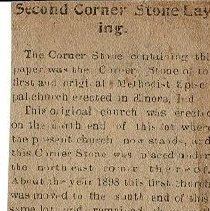 Second Corner Stone Lay
ing.
The Corner Stone containing this
paper was the Corner Stone of to
first and original Methodist Episco
pal church erected in Elnora, Ind
This original church was erected
on the north end of this lot where
the present church now stands, and
this Corner Stone was placed under
the northeast corner thereof.
About the year 1898 this first church
was moved to the south end of this
same lot and